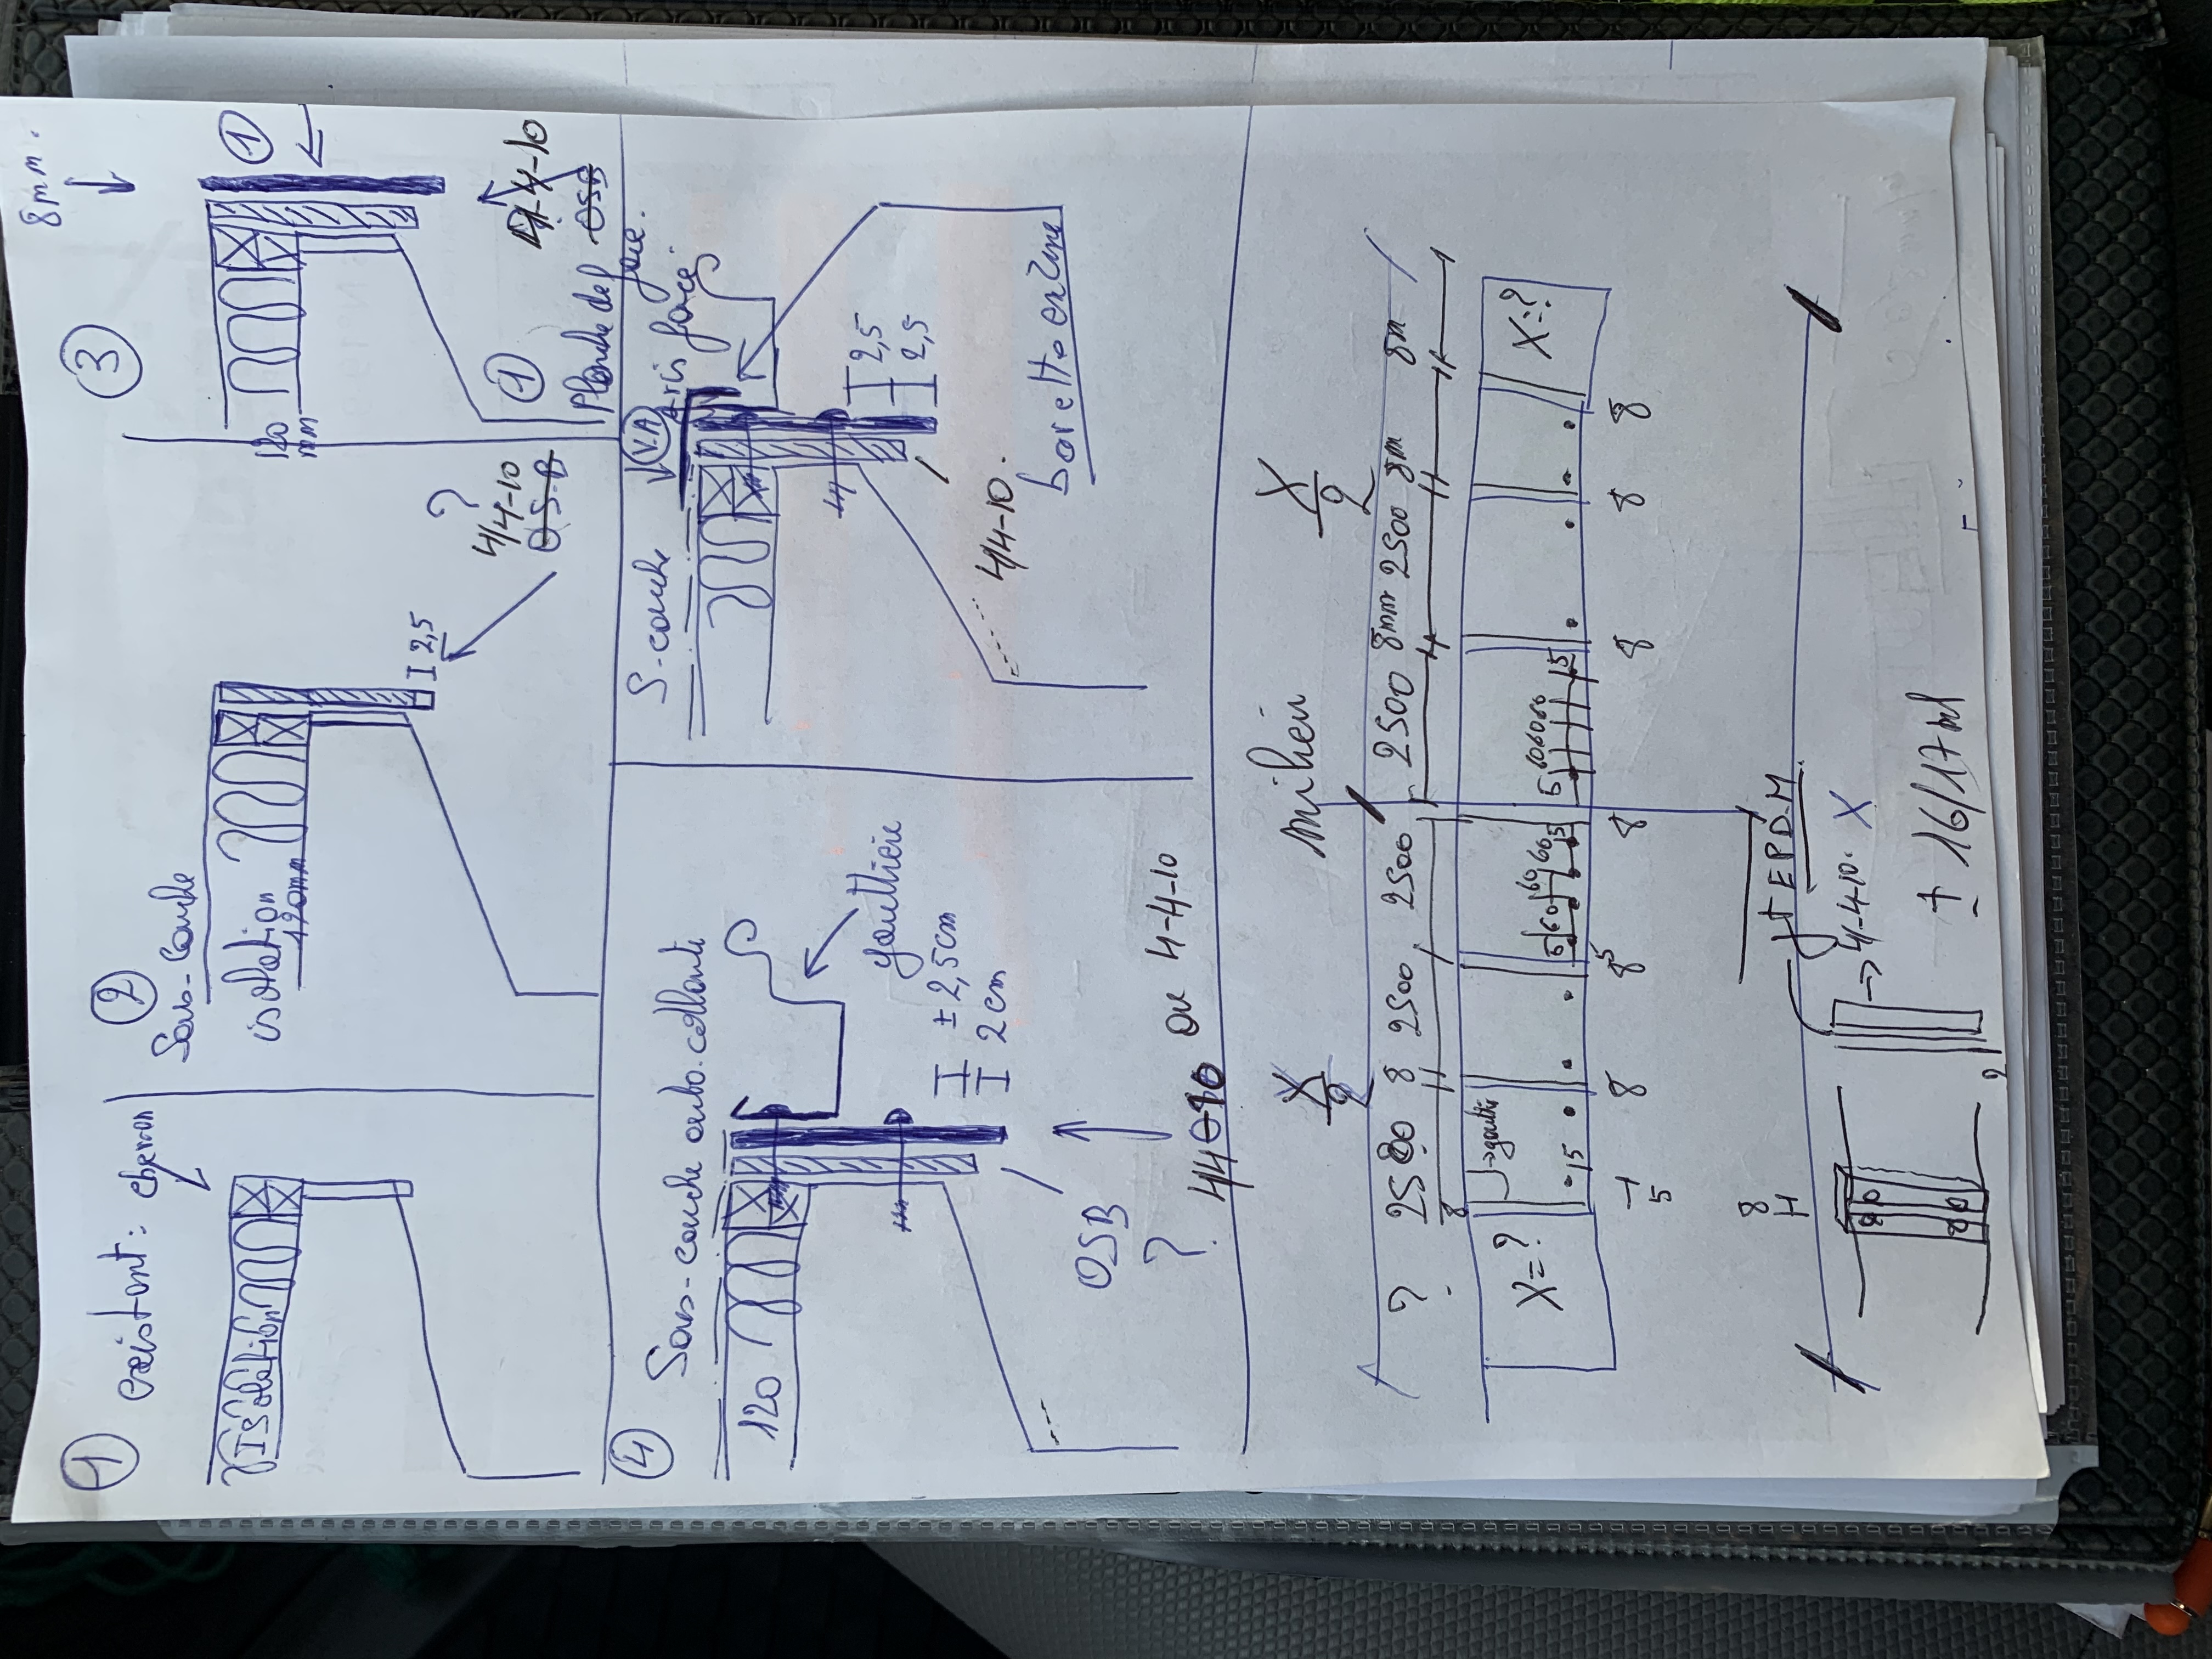 1
existant: chevron
ISolation
2
Sous-couche
isolation
120mm
I 2,5
?
4/4-10
OS-B
3
8mm.
1
120
mm
1
4-4-10
OSB
Planche de face.
4
Sous-couche auto.collante
120
gouttière
± 2,5cm
2 cm
OSB
?
4/4 10 ou 4-4-10
S-couche
V.A
2,5
2,5
4/4-10.
boretto en zinc
X/2
milieu
X/2
? 2500 8 2500, 2500
2500 8mm 2500 8m 8m
X=?
gouttière
15
5 60 60 60 5
5 60 60 60 15
X=?
5
8
8
8
8
8
8
8
H
EPDM
4-4-10. X
± 16/17ml